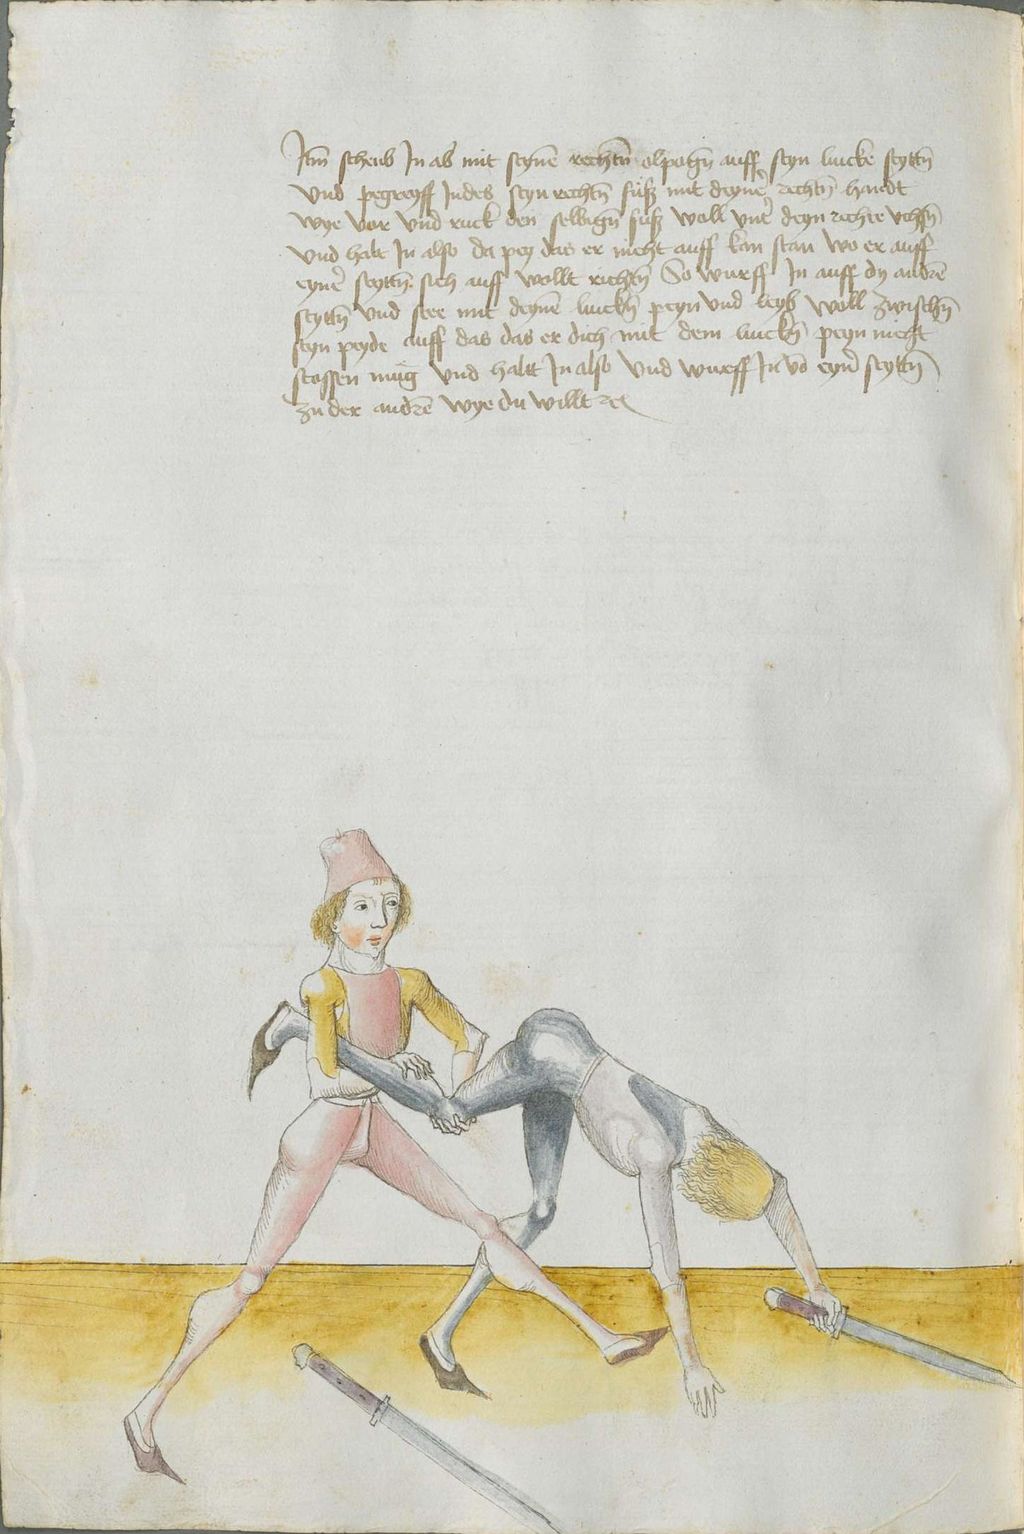 Itm̄ scheub In ab mit seynē rechtn̄ elpogn̄ auff seyn lincke seyttn̄
Vnd pegreyff Jndes seyn rechtn̄ fuß mit deyner̄ rechtn̄ handt
wye vor vnd ruck den selbign̄ fuß woll vnter̄ deyn rechte vchsn̄
vnd halt In also da pey das er nicht auff kan stan wo er auff
eyner̄ seyttn̄ sich auff wollt richtn̄ So wurff In auff dy andrē
seyttn̄ vnd stee mit deynē linckn̄ peyn vnd leyb woll zwischn̄
seyn peyde auff das das er dich mit dem linckn̄ peyn nicht
stossen mug vnd haltt In also vnd wurff In vō eyner̄ seyttn̄
zu der andrē wye du willt rc